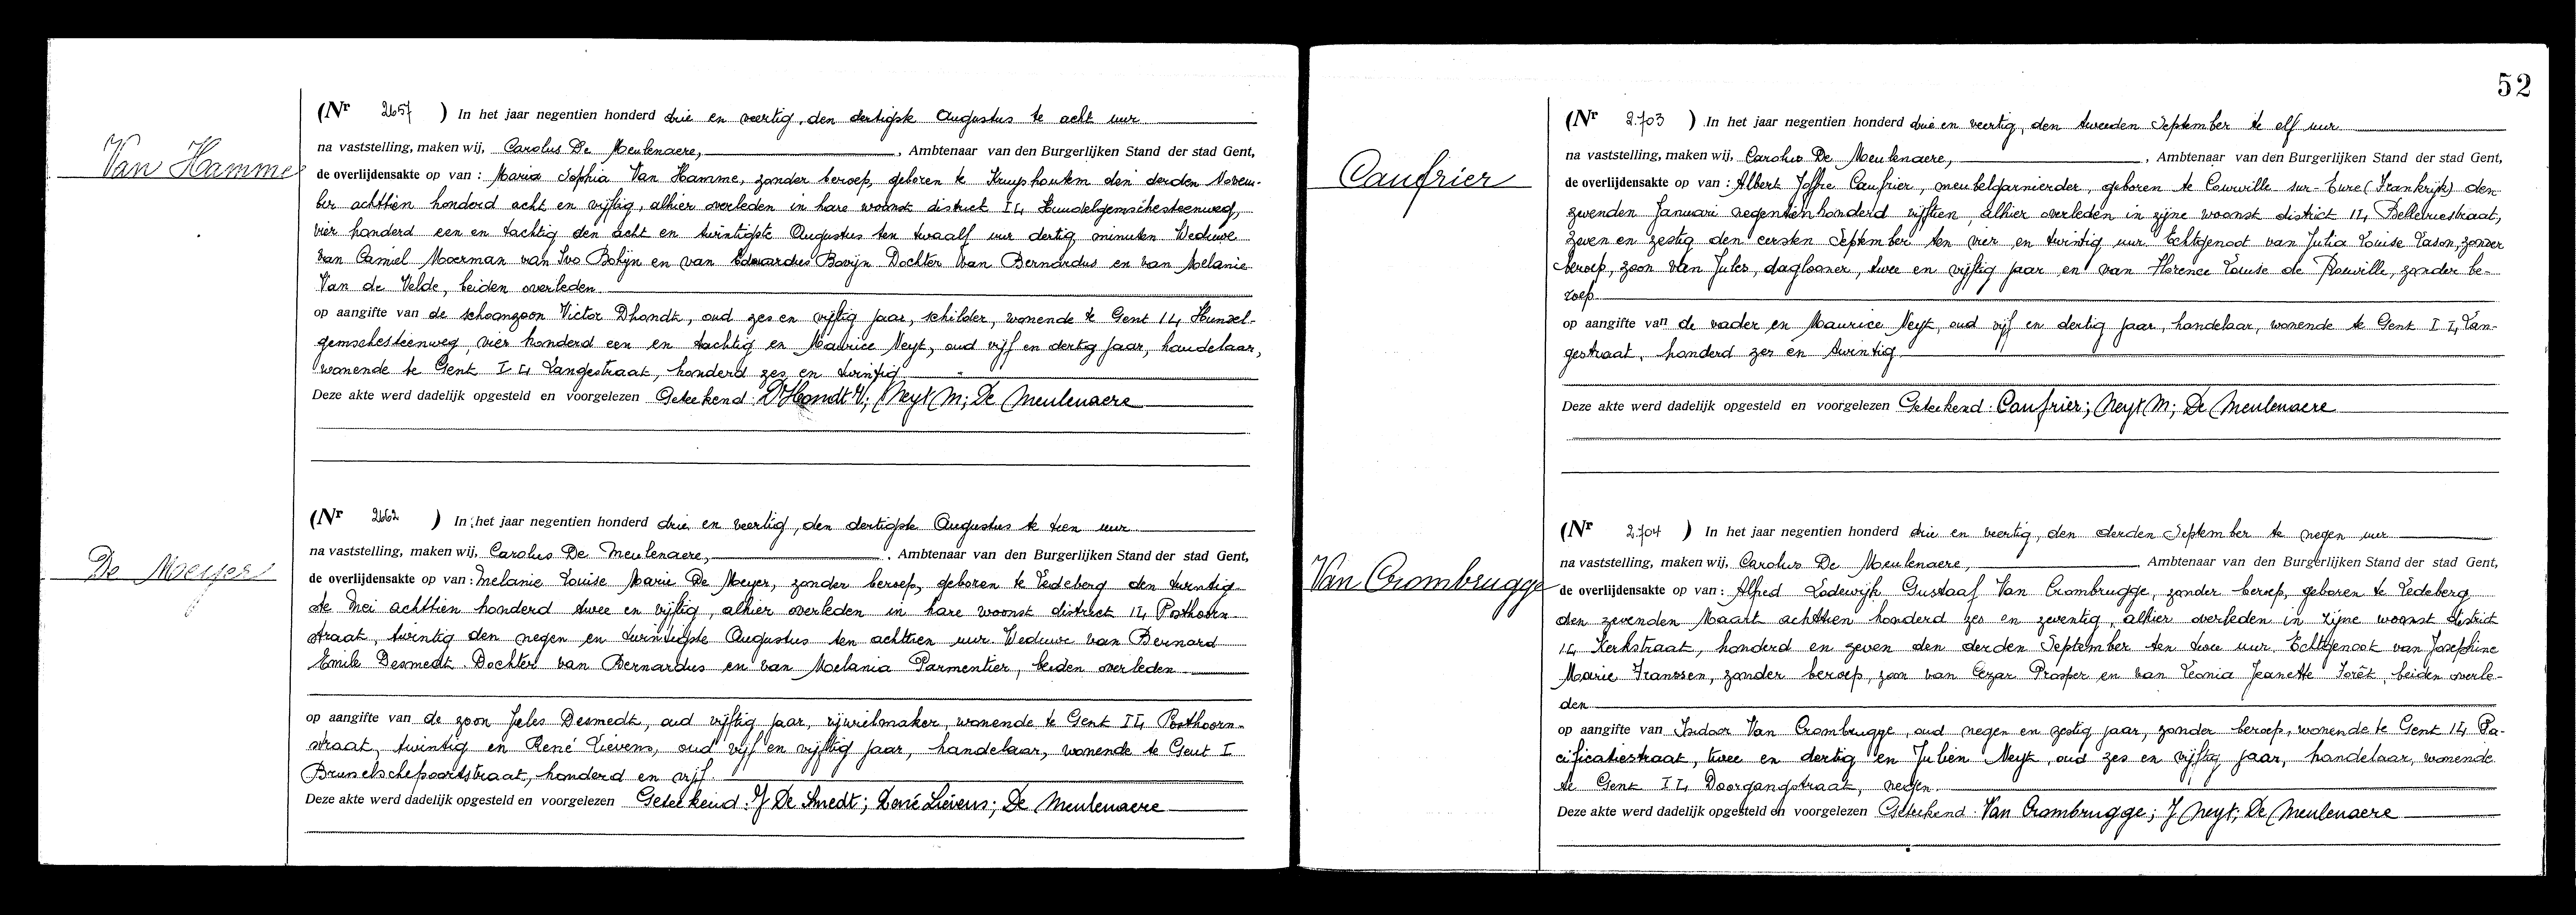 52
Van Hamme
(Nr 2657 ) In het jaar negentien honderd drie en veertig, den dertigste Augustus te acht uur
na vaststelling, maken wij, Carolus De Meulenaere, , Ambtenaar van den Burgerlijken Stand der stad Gent,
de overlijdensakte op van : Maria Sophia Van Hamme, zonder beroep, geboren te Kruyshoutem den derden Novem-
ber achttien honderd acht en vijftig, alhier overleden in hare woonst district I4 Hundelgemschesteenweg,
vier honderd een en tachtig den acht en twintigste Augustus ten twaalf uur dertig minuten Weduwe
van Camiel Moerman van Ivo Bobijn en van Eduardus Bovijn Dochter van Bernardus en van Melanie
Van de Velde, beiden overleden.
op aangifte van de schoonzoon Victor Dhondt, oud zes en vijftig jaar, schilder, wonende te Gent I4 Hundel-
gemschesteenweg, vier honderd een en tachtig en Maurice Neyt, oud vijf en dertig jaar, handelaar,
wonende te Gent I4 Langestraat, honderd zes en twintig
Deze akte werd dadelijk opgesteld en voorgelezen Geteekend: D'Hondt V; Neyt M; De Meulenaere
De Meyer
(Nr 2662 ) In het jaar negentien honderd drie en veertig, den dertigste Augustus te tien uur
na vaststelling, maken wij, Carolus De Meulenaere, , Ambtenaar van den Burgerlijken Stand der stad Gent,
de overlijdensakte op van : Melanie Louise Marie De Meyer, zonder beroep, geboren te Ledeberg den twintig-
ste Mei achttien honderd twee en vijftig, alhier overleden in hare woonst district I4 Posthoorn-
straat, twintig den negen en twintigste Augustus ten achttien uur Weduwe van Bernard
Emile Desmedt Dochter van Bernardus en van Melania Parmentier, beiden overleden
op aangifte van de zoon Jules Desmedt, oud vijftig jaar, rijwielmaker, wonende te Gent I4 Posthoorn-
straat, twintig en René Lievens, oud vijf en vijftig jaar, handelaar, wonende te Gent I
Brusselschepoortstraat, honderd en vijf
Deze akte werd dadelijk opgesteld en voorgelezen Geteekend: J De Smedt; René Liévens; De Meulenaere
Caufrier
(Nr 2703 ) In het jaar negentien honderd drie en veertig, den tweeden September te elf uur
na vaststelling, maken wij, Carolus De Meulenaere, , Ambtenaar van den Burgerlijken Stand der stad Gent,
de overlijdensakte op van : Albert Joffre Caufrier, meubelgarnierder, geboren te Courville sur-Eure (Frankrijk) den
zevenden Januari negentienhonderd vijftien, alhier overleden in zijne woonst district I4 Bellevuestraat,
zeven en zestig den eersten September ten vier en twintig uur. Echtgenoot van Julia Louise Lason, zonder
beroep, zoon van Jules, daglooner, twee en vijftig jaar en van Florence Louise de Rouville, zonder be-
roep.
op aangifte van de vader en Maurice Neyt, oud vijf en dertig jaar, handelaar, wonende te Gent I4 Lan-
gestraat, honderd zes en twintig
Deze akte werd dadelijk opgesteld en voorgelezen Geteekend: Caufrier; Neyt M; De Meulenaere
Van Crombrugge
(Nr 2704 ) In het jaar negentien honderd drie en veertig, den derden September te negen uur
na vaststelling, maken wij, Carolus De Meulenaere, Ambtenaar van den Burgerlijken Stand der stad Gent,
de overlijdensakte op van : Alfred Lodewijk Gustaaf Van Crombrugge, zonder beroep, geboren te Ledeberg
den zevenden Maart achttien honderd zes en zeventig, alhier overleden in zijne woonst district
I4 Kerkstraat, honderd en zeven den derden September ten twee uur. Echtgenoot van Josephine
Marie Franssen, zonder beroep, zoon van Cezar Prosper en van Leonia Jeanette Forêt, beiden overle-
den
op aangifte van Isidoor Van Crombrugge, oud negen en zestig jaar, zonder beroep, wonende te Gent I4 Pa-
cificatiestraat, twee en dertig en Julien Neyt, oud zes en vijftig jaar, handelaar, wonende
te Gent I4 Doorgangstraat, negen.
Deze akte werd dadelijk opgesteld en voorgelezen Geteekend: Van Crombrugge; J Neyt; De Meulenaere